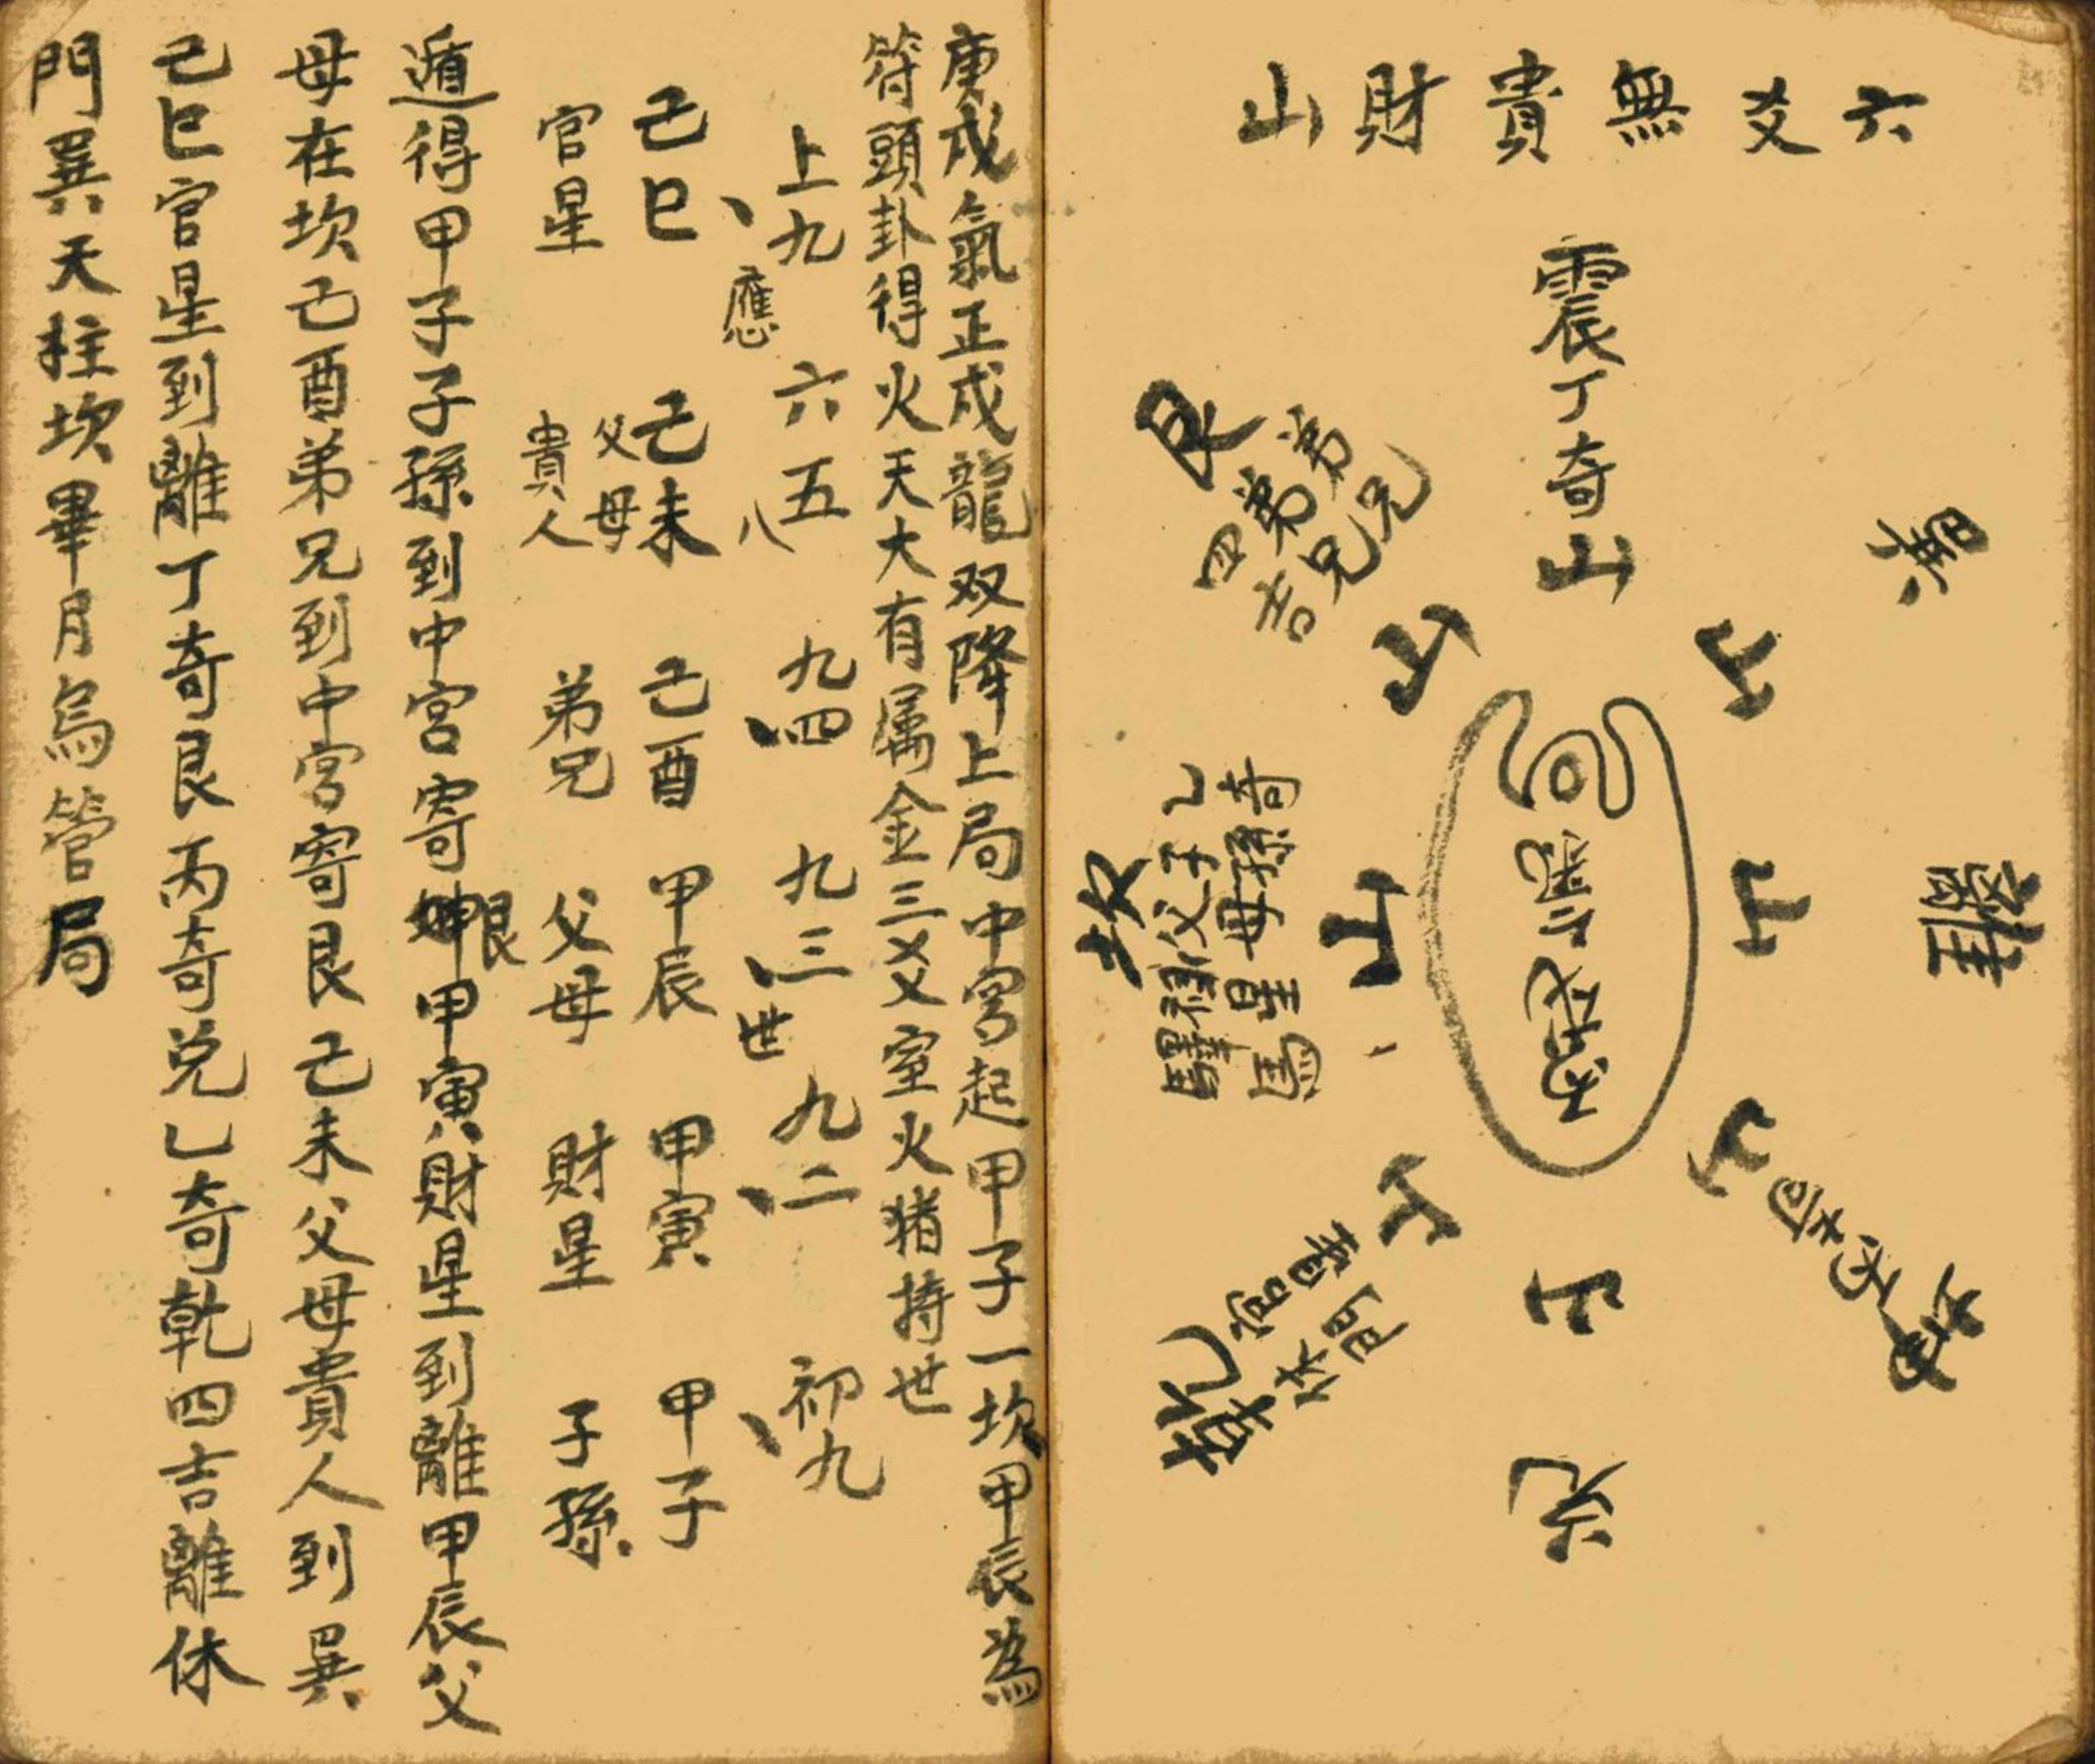 六爻無貴財山
震丁奇山
巽
山
離
山
坤丙奇
山
兌
山
乾
亥宮龍
休門
山
坎
乙子父禄驛
奇孫母星馬
山
艮
弟兄
弟兄
四吉
山
庚戌氣正戌龍双降上局中宮起甲子一坎甲辰為
符頭卦得火天大有属金三爻室火猪持世
上九 六五 九四 九三 九二 初九
應 八 世
己巳 己未 己酉 甲辰 甲寅 甲子
官星 父母 貴人 弟兄 父母 財星 子孫
遁得甲子子孫到中宮寄艮甲寅財星到離甲辰父
母在坎己酉弟兄到中宮寄艮己未父母貴人到巽
己巳官星到離丁奇艮丙奇兌乙奇乾四吉離休
門巽天柱坎畢月烏管局